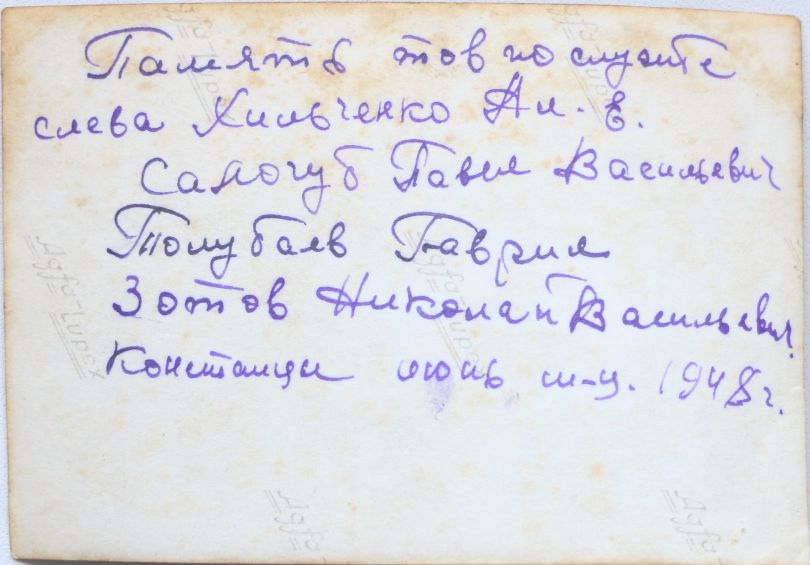 Память тов по службе
слева Хильченко Ал. Е.
Самогуб Павел Васильевич
Толубаев Гаврил
Зотов Николай Васильевич.
Констанци июнь м-ц. 1948 г.
Agfa-Lupex
Agfa-Lupex
Agfa-Lupex
Agfa-Lupex
Agfa-
Agfa-